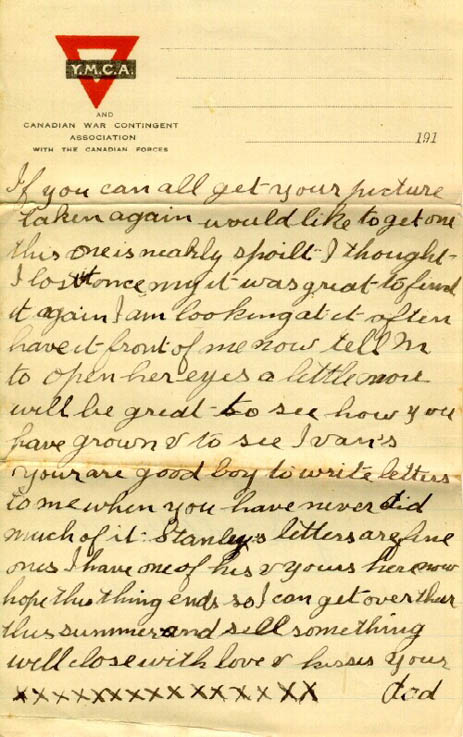 Y.M.C.A.
AND
CANADIAN WAR CONTINGENT
ASSOCIATION
WITH THE CANADIAN FORCES
191
If you can all get your picture
taken again would like to get one
this one is neakly spoilt I thought
I lost it once my it was great to find
it again I am looking at it often
have it front of me now tell M
to open her eyes a little more
will be great to see how you
have grown & to see Ivan's
your are good boy to write letters
to me when you have never did
much of it. Stanleys letters are fine
ones I have one of his & yours here now
hope this thing ends so I can get over ther
this summer and sell something
will close with love & kisses your
xxxxxxxxxxxxxxxx Dad